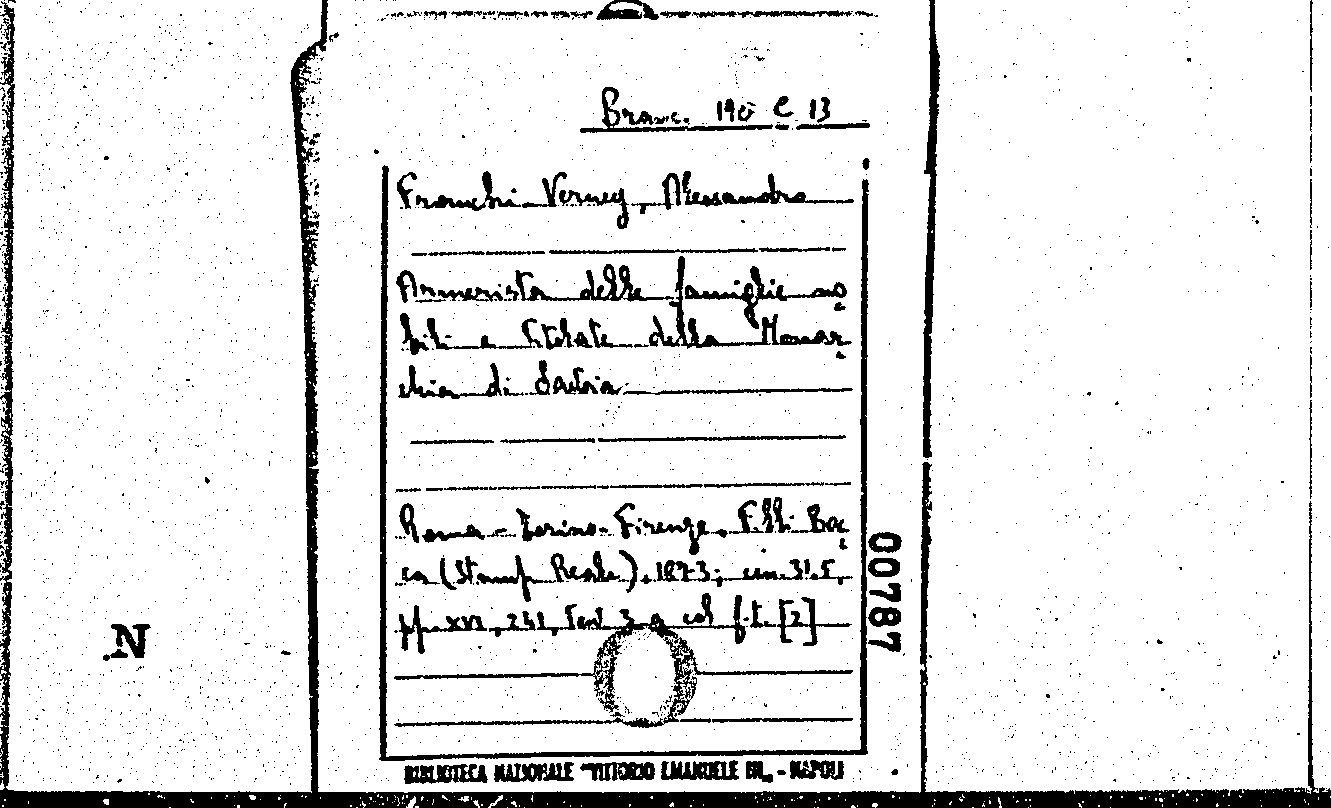 Branc. 190 C 13
Franchi-Verney, Alessandro
Armerista delle famiglie no
bili e titolate della Monar
chia di Savoia
Roma-Torino-Firenze, F.lli Boc
ca (Stamp. Reale), 1873; cm. 31.5,
pp. XVI, 241, tav. 3 a col f.t. [2]
00787
N
BIBLIOTECA NAZIONALE "VITTORIO EMANUELE III„ - NAPOLI